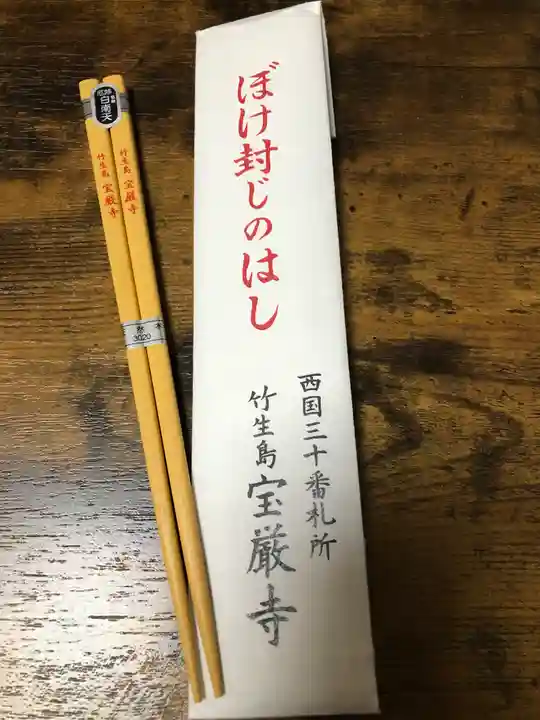 ぼけ封じのはし
西国三十番札所
竹生島 宝厳寺
白南天
竹生島 宝厳寺
竹生島 宝厳寺
3020